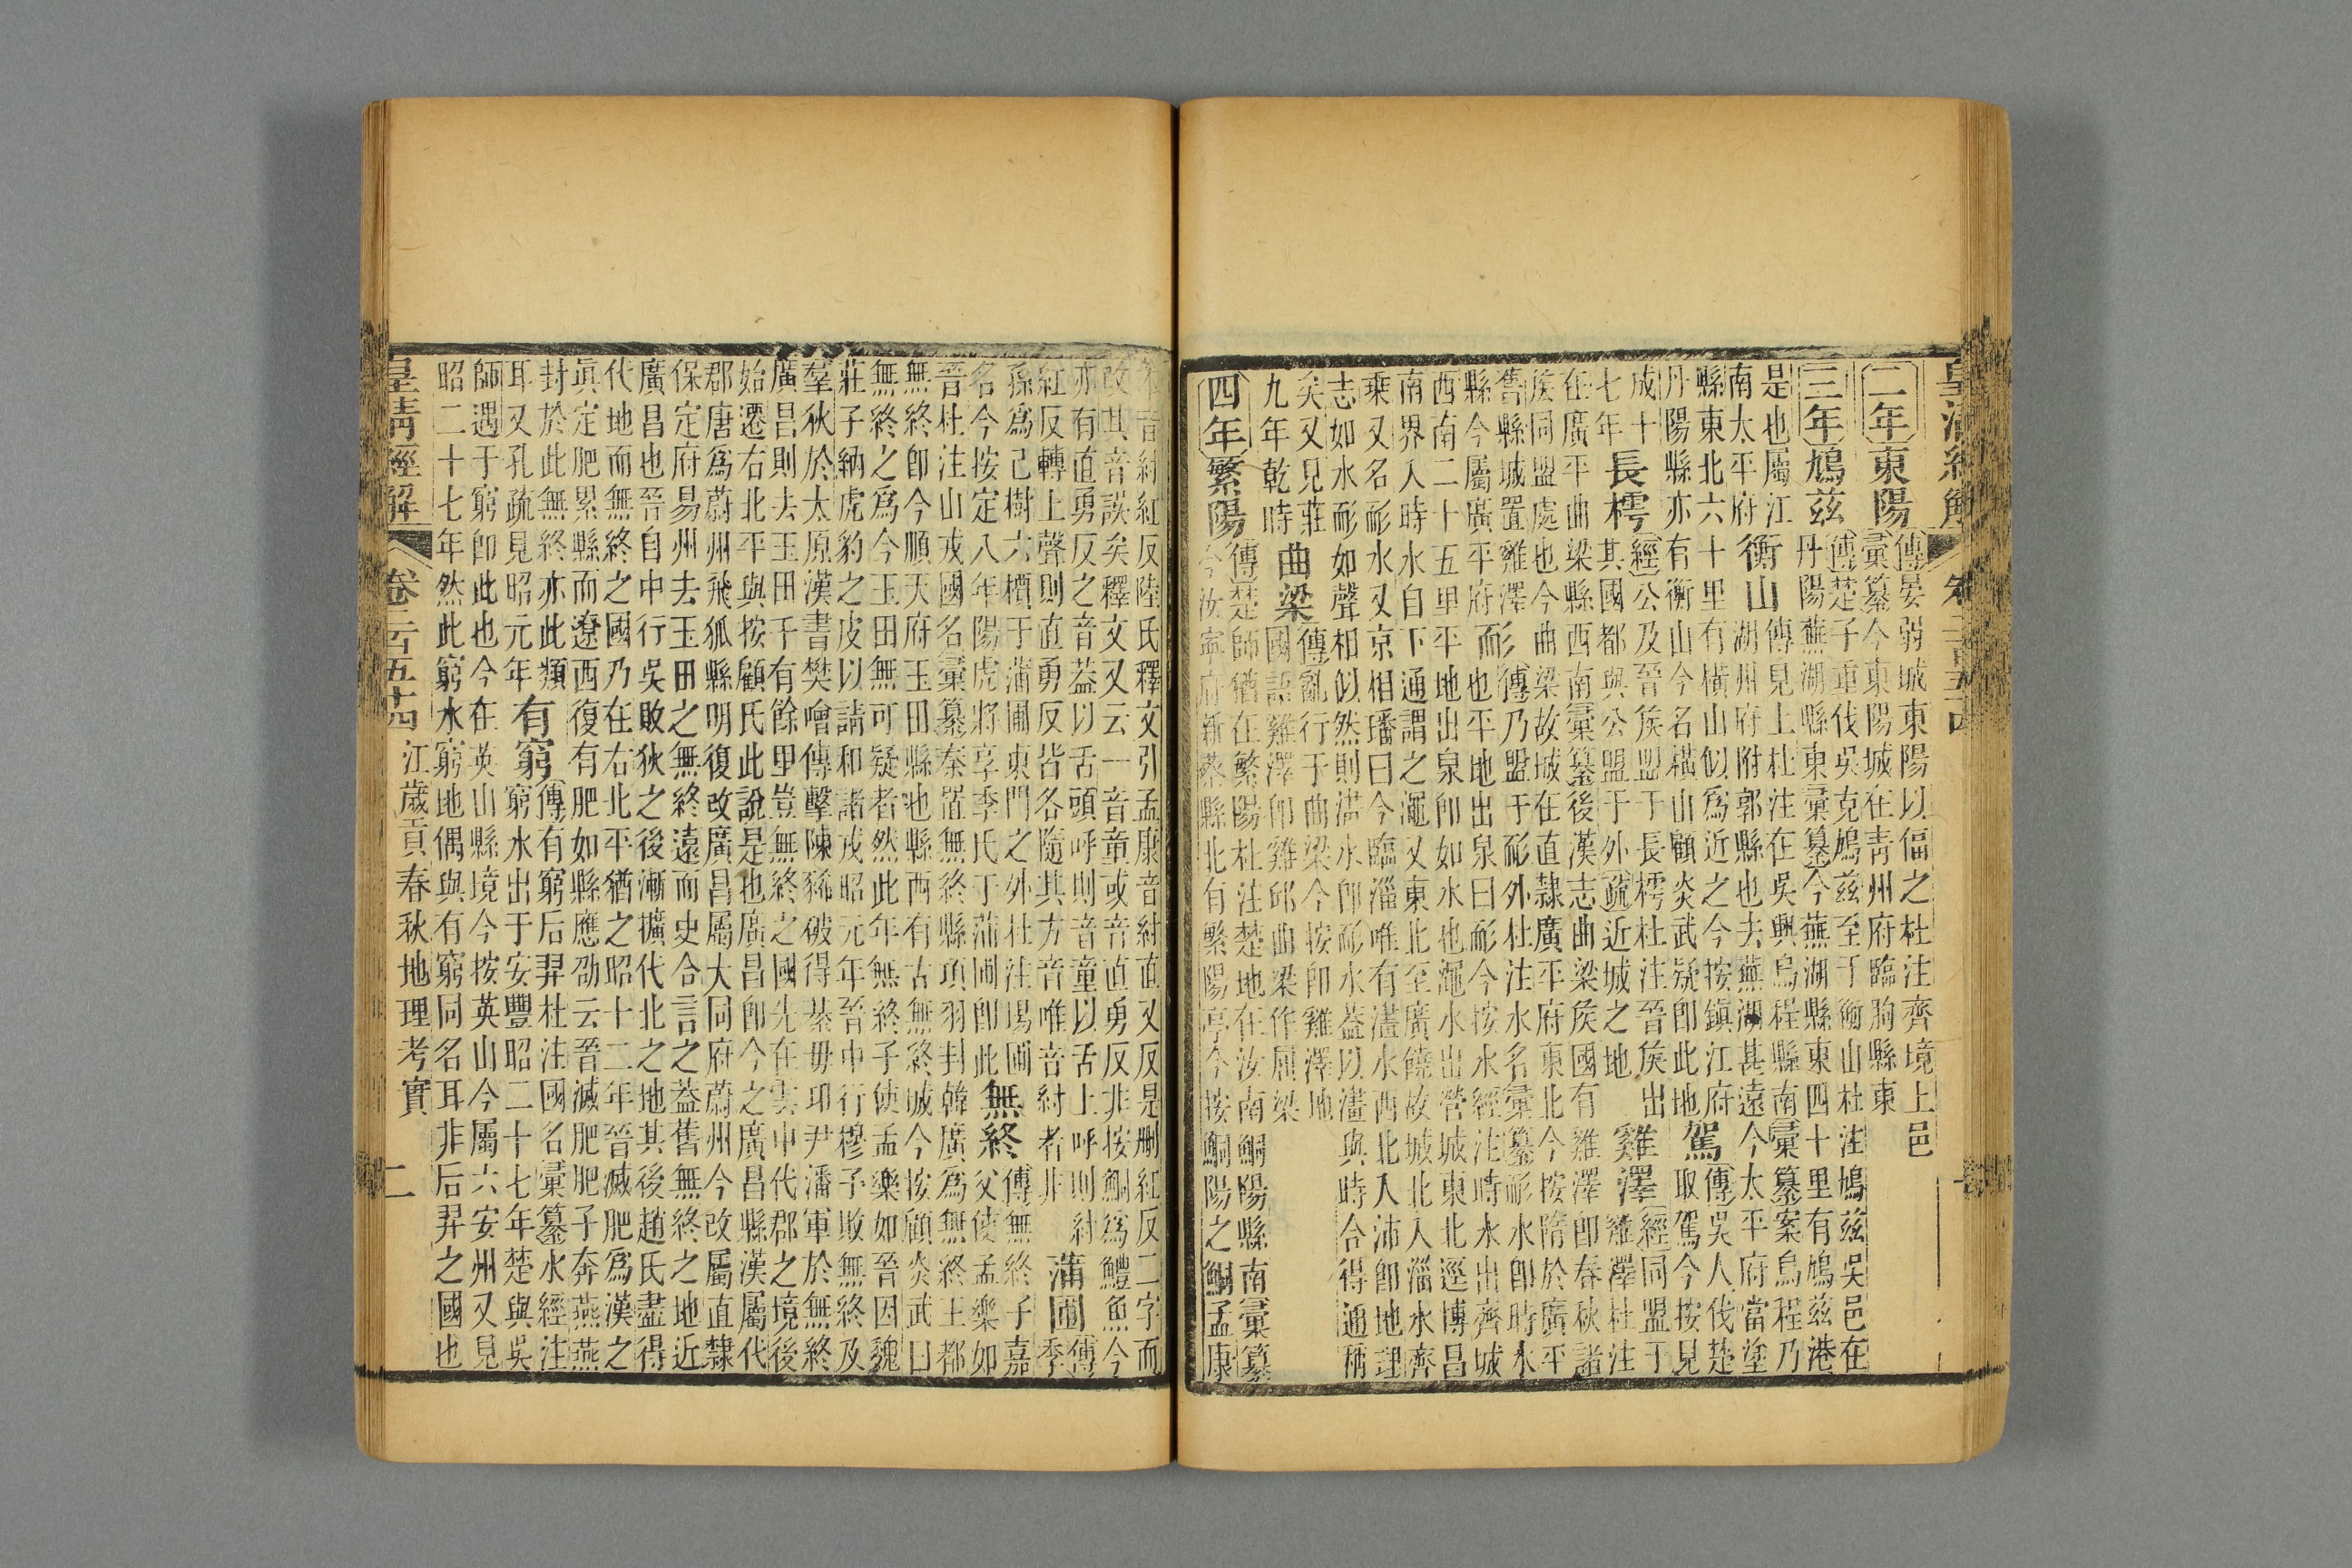 皇清經解 卷二百五十四
二年東陽
傳晏弱城東陽以偪之杜注齊境上邑
彙纂今東陽城在靑州府臨朐縣東
三年鳩茲
傳楚子重伐吳克鳩茲至于衡山杜注鳩茲吳邑在
丹陽蕪湖縣東彙纂今蕪湖縣東四十里有鳩茲港
是也屬江
南太平府
衡山
傳見上杜注在吳興烏程縣南彙纂案烏程乃
湖州府附郭縣也去蕪湖甚遠今太平府當塗
縣東北六十里有橫山似爲近之今按鎭江府
丹陽縣亦有衡山今名橫山顧炎武疑卽此地
駕
傳吳人伐楚
取駕今按見
成十
七年
長樗
經公及晉侯盟于長樗杜注晉侯出
其國都與公盟于外疏近城之地
雞澤
經同盟于
雞澤杜注
在廣平曲梁縣西南彙纂後漢志曲梁侯國有雞澤卽春秋諸
侯同盟處也今曲梁故城在直隸廣平府東北今按隋於廣平
舊縣城置雞澤
縣今屬廣平府
耏
傳乃盟于耏外杜注水名彙纂耏水卽時水
也平地出泉曰耏今按水經注時水出齊城
西南二十五里平地出泉卽如水也澠水出營城東北逕博昌
南界入時水自下通謂之澠又東北至廣饒故城北入淄水齊
乘又名耏水又京相璠曰今臨淄唯有澅水西北入沛卽地理
志如水耏如聲相似然則澅水卽耏水蓋以澅與時合得通稱
矣又見莊
九年乾時
曲梁
傳亂行于曲梁今按卽雞澤地
國語雞澤卽雞邱曲梁作屈梁
四年繁陽
傳楚師猶在繁陽杜注楚地在汝南鮦陽縣南彙纂
今汝寧府新蔡縣北有繁陽亭今按鮦陽之鮦孟康
本音紂紅反陸氏釋文引孟康音紂直又反是刪紅反二字而
改其音誤矣釋文又云一音童或音直勇反非按鮦爲鱧魚今
亦有直勇反之音蓋以舌頭呼則音童以舌上呼則紂
紅反轉上聲則直勇反皆各隨其方音唯音紂者非
蒲圃
傳
季
孫爲己樹六檟于蒲圃東門之外杜注場圃
名今按定八年陽虎將享季氏于蒲圃卽此
無終
傳無終子嘉
父使孟樂如
晉杜注山戎國名彙纂秦置無終縣項羽封韓廣爲無終王都
無終卽今順天府玉田縣也縣西有古無終城今按顧炎武曰
無終之爲今玉田無可疑者然此年無終子使孟樂如晉因魏
莊子納虎豹之皮以請和諸戎昭元年晉中行穆子敗無終及
羣狄於太原漢書樊噲傳擊陳豨破得綦毋卬尹潘軍於無終
廣昌則去玉田千有餘里豈無終之國先在雲中代郡之境後
始遷右北平與按顧氏此說是也廣昌卽今之廣昌縣漢屬代
郡唐爲蔚州飛狐縣明復改廣昌屬大同府蔚州今改屬直隸
保定府易州去玉田之無終遠而史合言之蓋舊無終之地近
廣昌也晉自中行吳敗狄之後漸擴代北之地其後趙氏盡得
代地而無終之國乃在右北平猶之昭十二年晉滅肥爲漢之
眞定肥累縣而遼西復有肥如縣應劭云晉滅肥肥子奔燕燕
封於此無終亦此類
耳又孔疏見昭元年
有窮
傳有窮后羿杜注國名彙纂水經注
窮水出于安豐昭二十七年楚與吳
師遇于窮卽此也今在英山縣境今按英山今屬六安州又見
昭二十七年然此窮水窮地偶與有窮同名耳非后羿之國也
皇清經解 卷二百五十四 江歲貢春秋地理考實 二